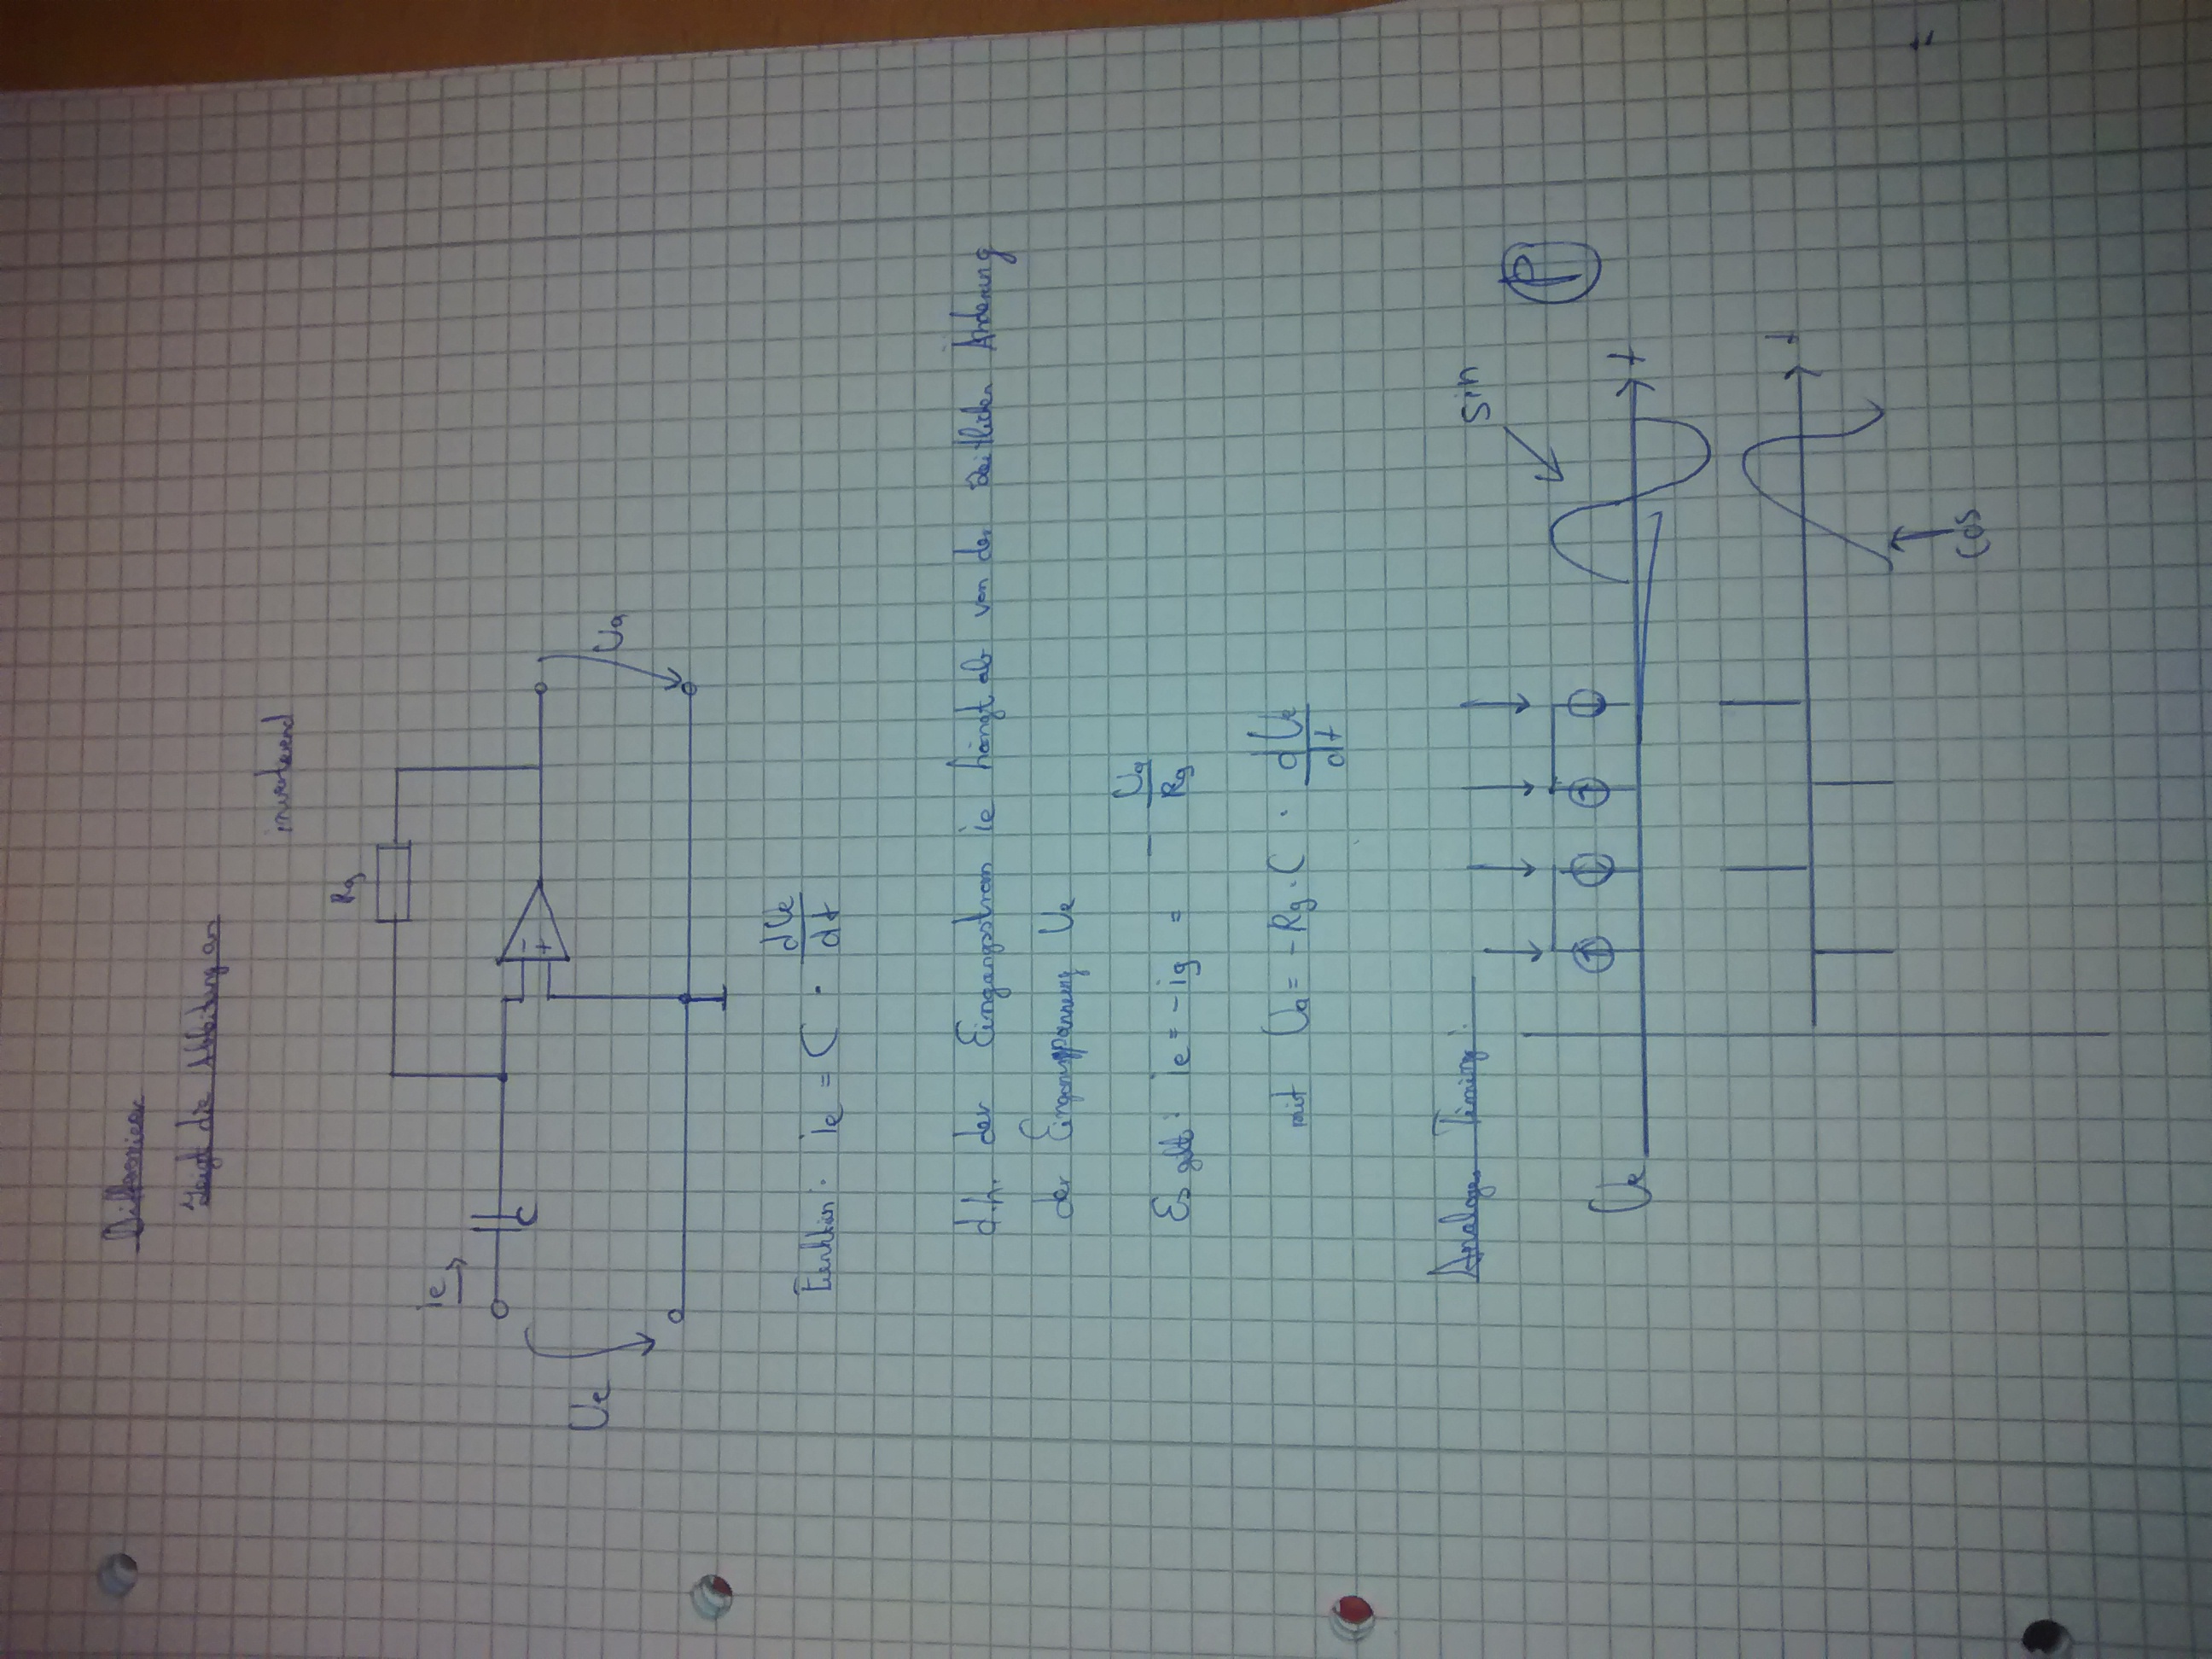 Differenzierer
Zeigt die Ableitung an
invertierend
Rg
ie
C
-
+
Ue
Ua
Funktion: ie = C · dUe/dt
d.h. der Eingangsstrom ie hängt ab von der zeitlichen Änderung
der Eingangspannung Ue
Es gilt: ie = -ig = - Ua/Rg
mit Ua = -Rg · C · dUe/dt
Analoges Timing:
sin
P
Ue
t
t
cos